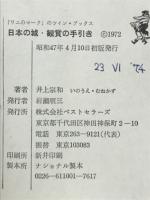 「ワニのマーク」のツイン・ブックス
日本の城・観賞の手引き ©1972
昭和47年4月10日初版発行
23 VI '74
著者 井上宗和 いのうえ・むねかず
発行者 岩瀬順三
発行所 株式会社ベストセラーズ
東京都千代田区神田神保町2−10
電話 東京263−9121(代表)
振替 東京103083
印刷所 新井印刷
製本所 ナショナル製本
0026−611001−7617